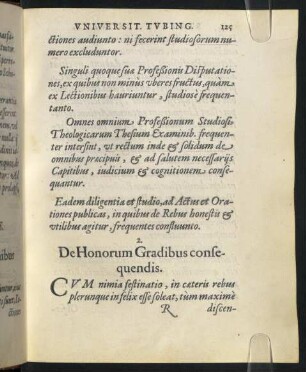 VNIVERSIT. TVBING. 125
ctiones audiunto: ni fecerint studiosorum nu
mero excluduntor.
Singuli quoque sua Professionis Disputatio-
nes, ex quibus non minus vberes fructus, quàm
ex Lectionibus hauriuntur, studiosè frequen-
tanto.
Omnes omnium Professionum Studiosi
Theologicarum Thesium Examinib. frequen-
ter intersint, vt rectum inde & solidum de
omnibus præcipuis, & ad salutem necessarijs
Capitibus, iudicium & cognitionem conse-
quantur.
Eadem diligentia et studio, ad Actus et Ora-
tiones publicas, in quibus de Rebus honestis &
vtilibus agitur, frequentes confluunto.
2.
De Honorum Gradibus conse-
quendis.
CVM nimia festinatio, in cæteris rebus
plerunque infelix esse soleat, tùm maximè
R discen-